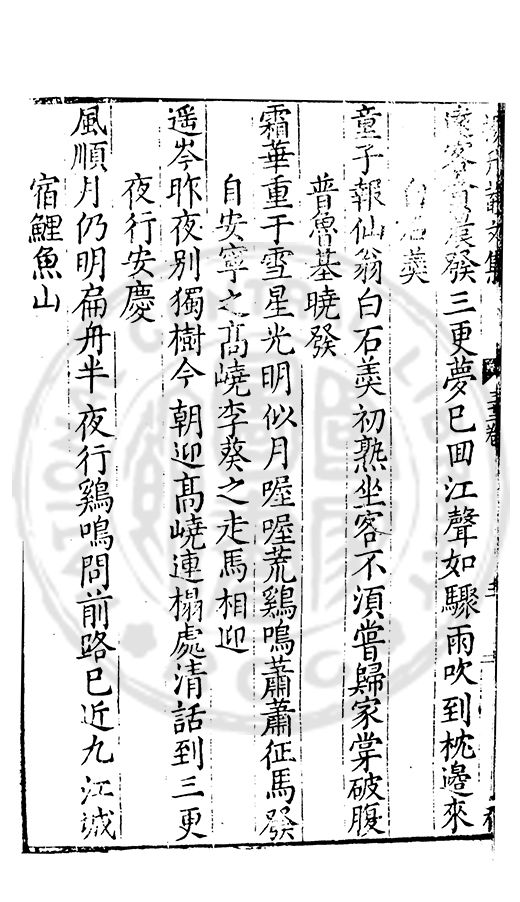 文集
客晨發三更夢巳囬江聲如驟雨吹到枕邊來
白石羮
童子報仙翁白石羮初熟坐客不湏嘗歸家掌破腹
普魯墓曉發
霜華重于雪星光明似月喔喔荒鷄鳴蕭蕭征馬發
自安寧之髙嶢李葵之走馬相迎
遥岑昨夜别獨樹今朝迎髙嶢連榻處清話到三更
夜行安慶
風順月仍明扁舟半夜行鷄鳴問前路巳近九江城
宿鯉魚山